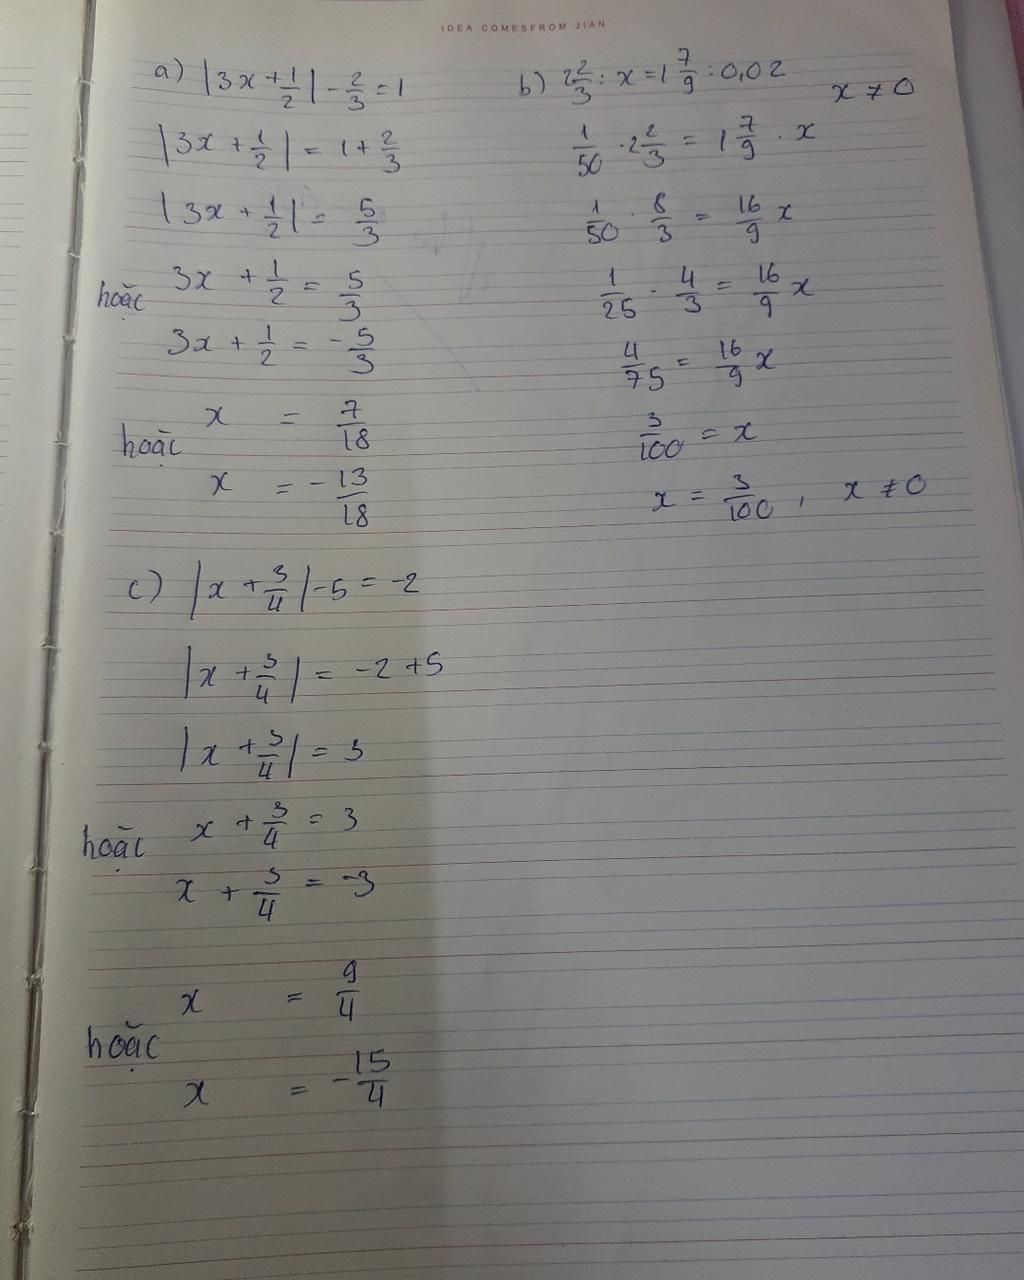 IDEA COMESFROM JIAN
a) |3x + 1/2| - 2/3 = 1
|3x + 1/2| = 1 + 2/3
|3x + 1/2| = 5/3
hoặc
3x + 1/2 = 5/3
3x + 1/2 = -5/3
hoặc
x = 7/18
x = -13/18
b) 2 2/3 : x = 1 7/9 : 0,02
x ≠ 0
1/50 · 2 2/3 = 1 7/9 · x
1/50 · 8/3 = 16/9 x
1/25 · 4/3 = 16/9 x
4/75 = 16/9 x
3/100 = x
x = 3/100 , x ≠ 0
c) |x + 3/4| - 5 = -2
|x + 3/4| = -2 + 5
|x + 3/4| = 3
hoặc
x + 3/4 = 3
x + 3/4 = -3
hoặc
x = 9/4
x = -15/4